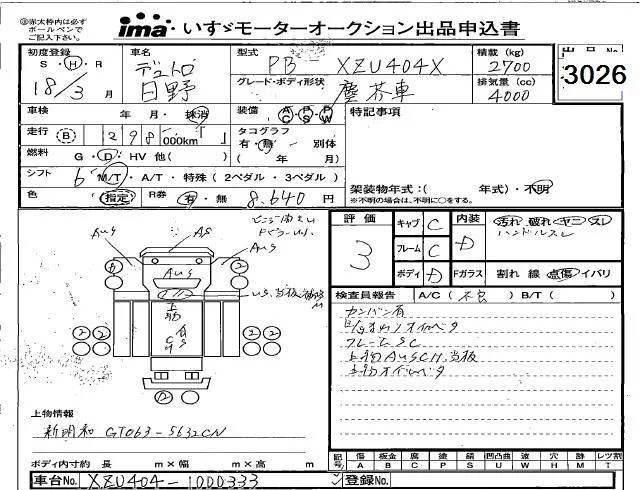 ③赤太枠内は必ず
ボールペンで
ご記入下さい。
ima いすゞモーターオークション出品申込書
出品No.
3026
初度登録 車名 型式 積載 (kg)
S・H・R デュトロ PB XZU404X 2700
18/3月 日野 グレード・ボディ形状 塵芥車 排気量 (cc)
4000
車検 年・月・抹消 装備 A/C P/S P/W 特記事項
走行 B 298 000km タコグラフ
有・無・別体
燃料 G・D・HV 他( ) ( 年 月)
シフト 6 M/T・A/T・特殊 (2ペダル・3ペダル) 架装物年式:( 年式)・不明
色 指定 R券 有・無 8.640円 ※不明の場合は、不明に○をする。
評価 3
キャブ C 内装 D 汚れ 破れ ヤニ スレ
ハンドルスレ
フレーム C
ボディ D Fガラス 割れ 線 点傷 イバリ
検査員報告 A/C( 不良 ) B/T( )
カンバン有
フレームSC
上物AUSCH.当板
上物オイルベタ
AUS AS AUS
AUS
上物
上物情報
新明和 GT063-5632CN
ボディ内寸約 長 m×幅 m×高 m
車台No. XZU404-1000333 登録No.
記号 傷 板金 腐 塗 錆 凹凸曲 波 穴 跡 レツ割
A B C P S U W H M T